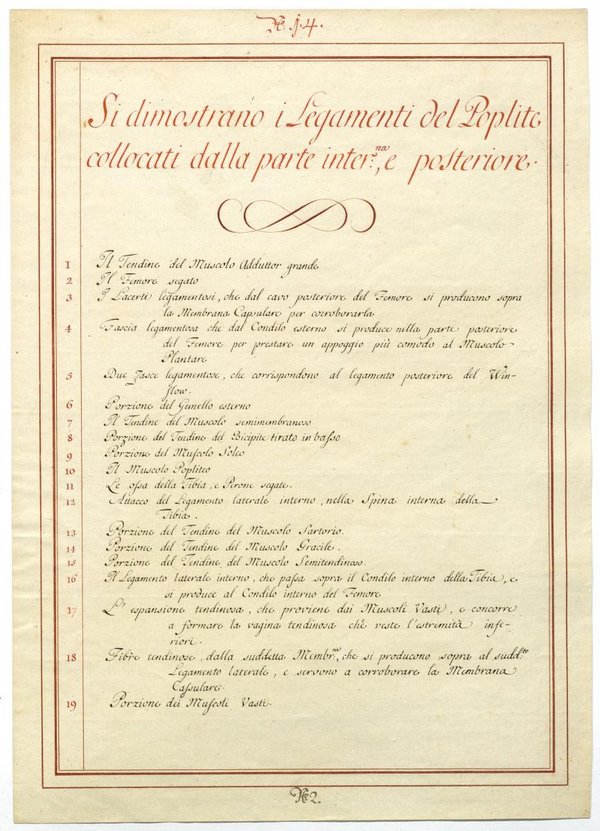 No. j.4.
Si dimostrano i Legamenti del Poplite
collocati dalla parte inter.na, e posteriore.
1 Il Tendine del Muscolo Adduttor grande
2 Il Femore segato
3 I Lacerti legamentosi, che dal cavo posteriore del Femore si producono sopra
la Membrana Capsulare per corroborarla
4 Fascia legamentosa che dal Condilo esterno si produce nella parte posteriore
del Femore per prestare un appoggio più comodo al Muscolo
Plantare
5 Due fasce legamentose, che corrispondono al legamento posteriore del Win-
slow.
6 Porzione del Gemello esterno
7 Il Tendine del Muscolo semimembranoso
8 Porzione del Tendine del Bicipite tirato in baſso
9 Porzione del Muſcolo Soleo
10 Il Muscolo Popliteo
11 Le oſsa della Tibia, e Perone segate.
12 Attacco del Legamento laterale interno, nella Spina interna della
Tibia.
13 Porzione del Tendine del Muscolo Sartorio.
14 Porzione del Tendine del Muscolo Gracile.
15 Porzione del Tendine, del Muscolo Semitendinoso.
16 Il Legamento laterale interno, che paſsa sopra il Condilo interno della Tibia, e
si produce al Condilo interno del Femore
17 L'espansione tendinosa, che proviene dai Muscoli Vasti, e concorre
a formare la vagina tendinosa che veste l'estremità infe-
riori.
18 Fibre tendinose, dalla suddetta Membna, che si producono sopra al suddtto
Legamento laterale, e servono a corroborare la Membrana
Capsulare.
19 Porzione dei Muſcoli Vasti.
No 2.